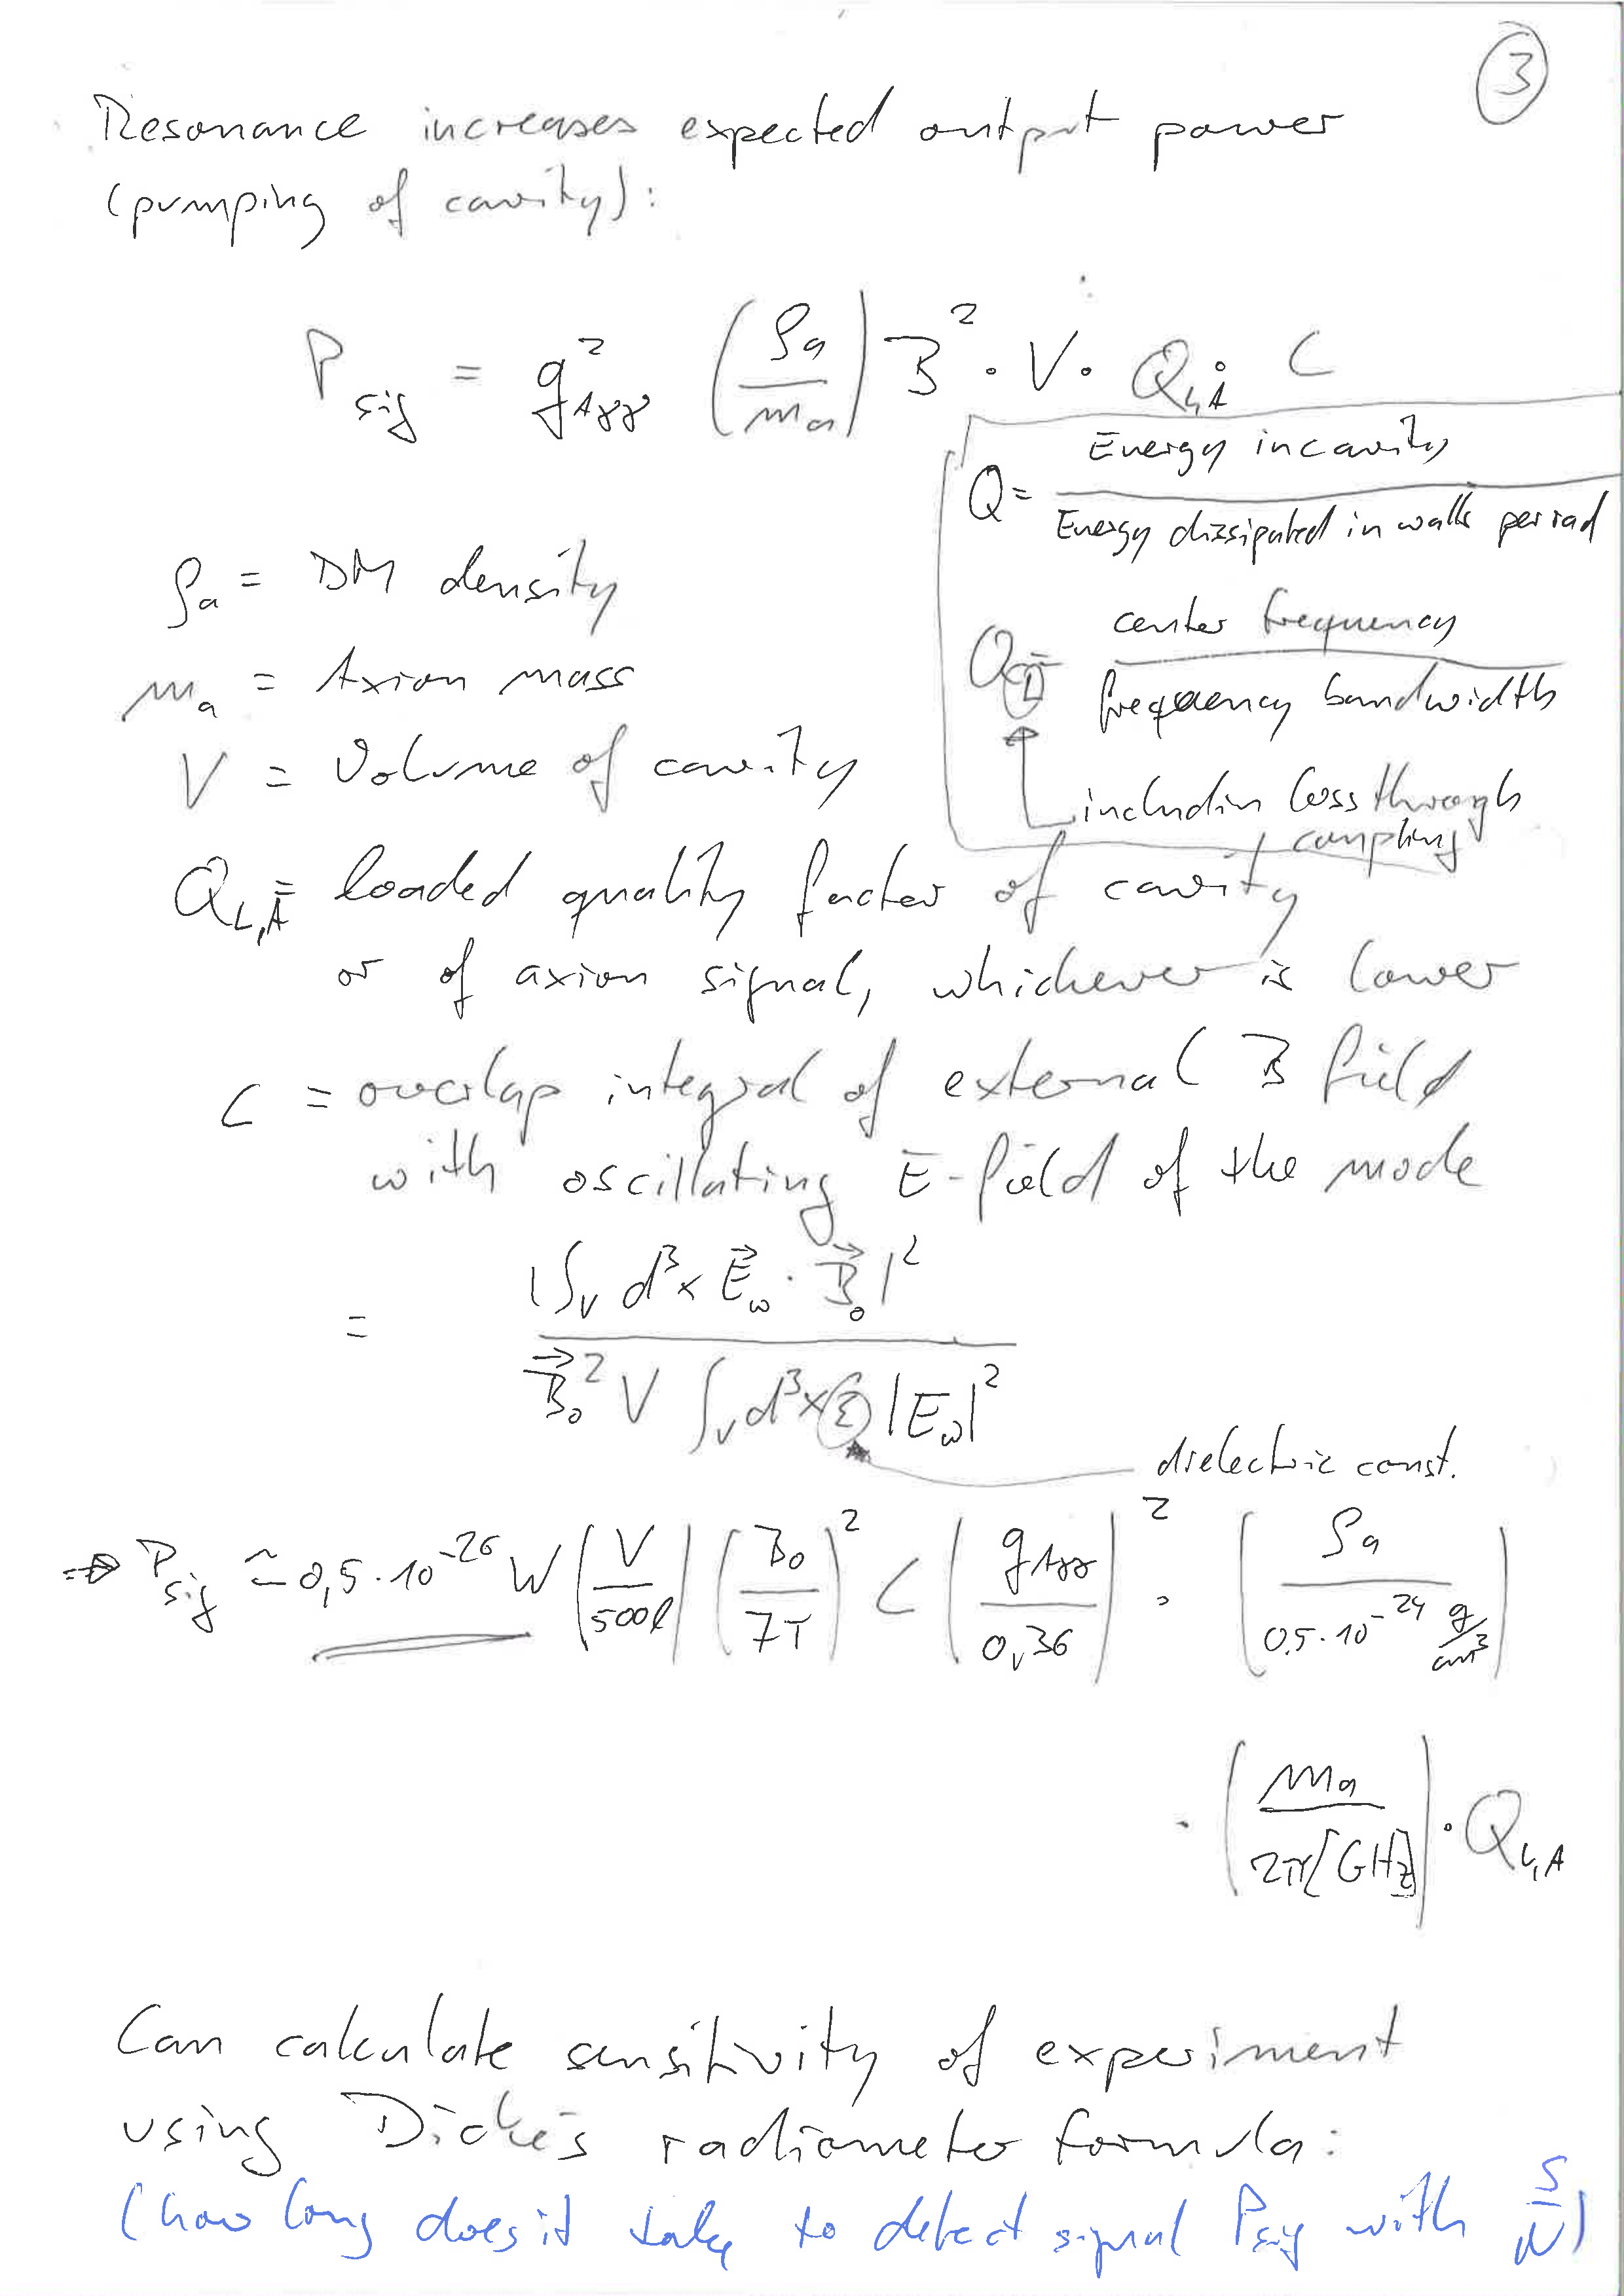 3
Resonance increases expected output power
(pumping of cavity):
P_sig = g²_Aγγ (ρ_a / m_a) B² · V · Q_L,A · C
Q = Energy in cavity / Energy dissipated in walls per rad
Q_L = center frequency / frequency bandwidth
includin loss through
coupling
ρ_a = DM density
m_a = Axion mass
V = Volume of cavity
Q_L,A = loaded quality factor of cavity
or of axion signal, whichever is lower
C = overlap integral of external B field
with oscillating E-field of the mode
= |∫_V d³x E⃗_ω · B⃗_0|² / B⃗_0² V ∫_V d³x ε |E_ω|²
dielectric const.
⇒ P_sig ≃ 0,5 · 10^-26 W (V / 500ℓ) (B_0 / 7T)² C (g_Aγγ / 0,36)² · (ρ_a / 0.5 · 10^-24 g/cm³)
· (m_a / 2π[GHz]) · Q_L,A
Can calculate sensitivity of experiment
using Dicke's radiometer formula:
(how long does it take to detect signal P_sig with S/N)